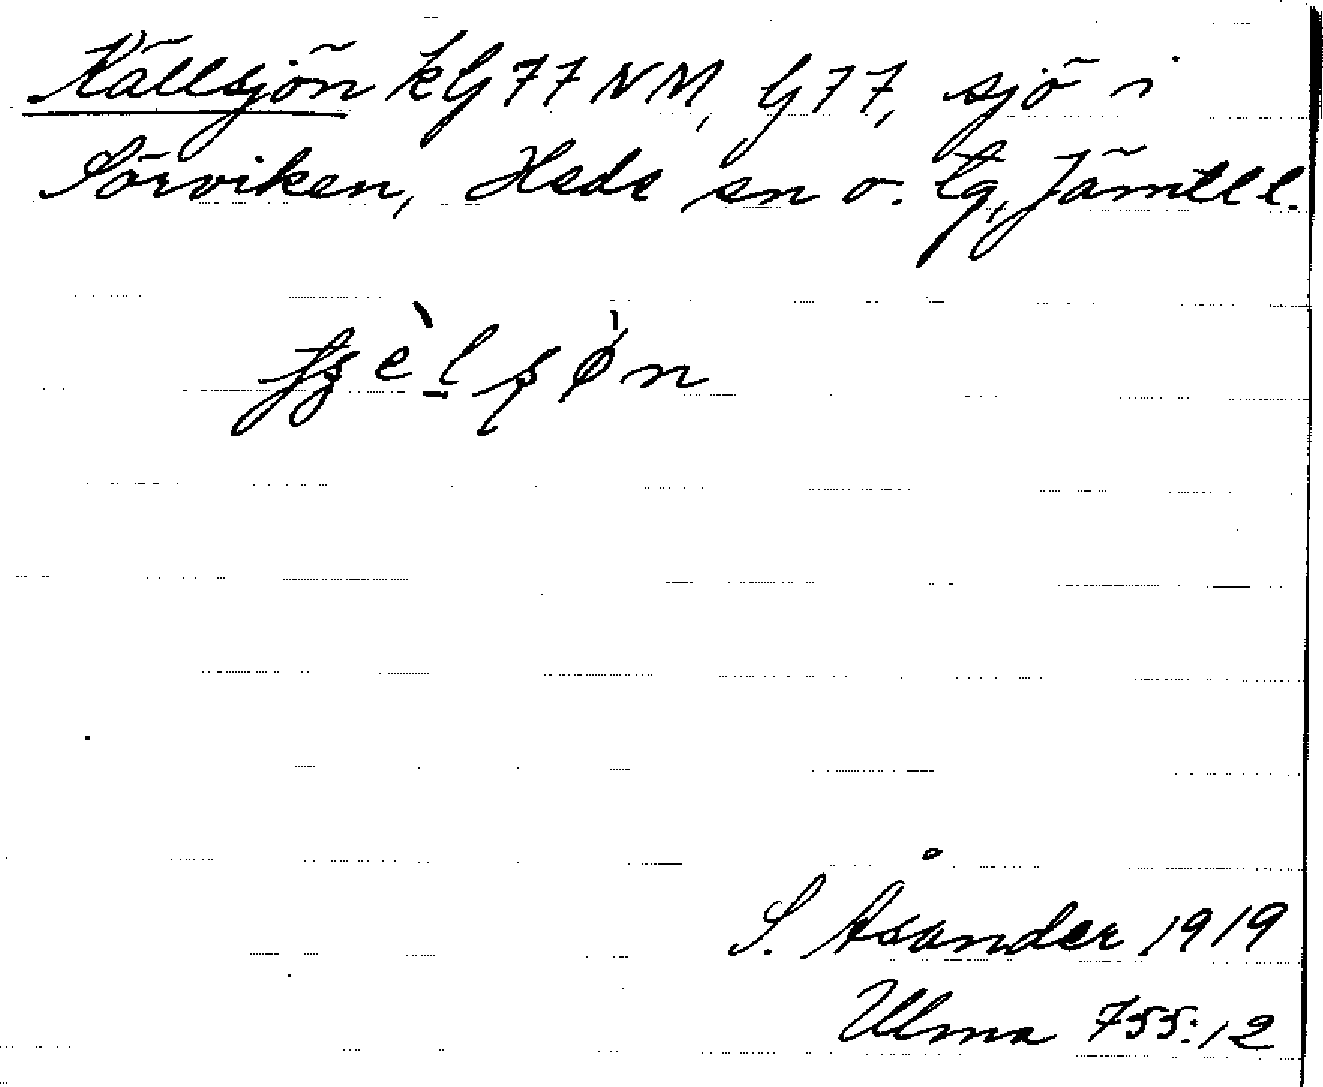 Källsjön kG77NM, G77, sjö i
Sörviken, Hede sn o. tg, Jämtl l.
S. Åsander 1919
Ulma 755:12